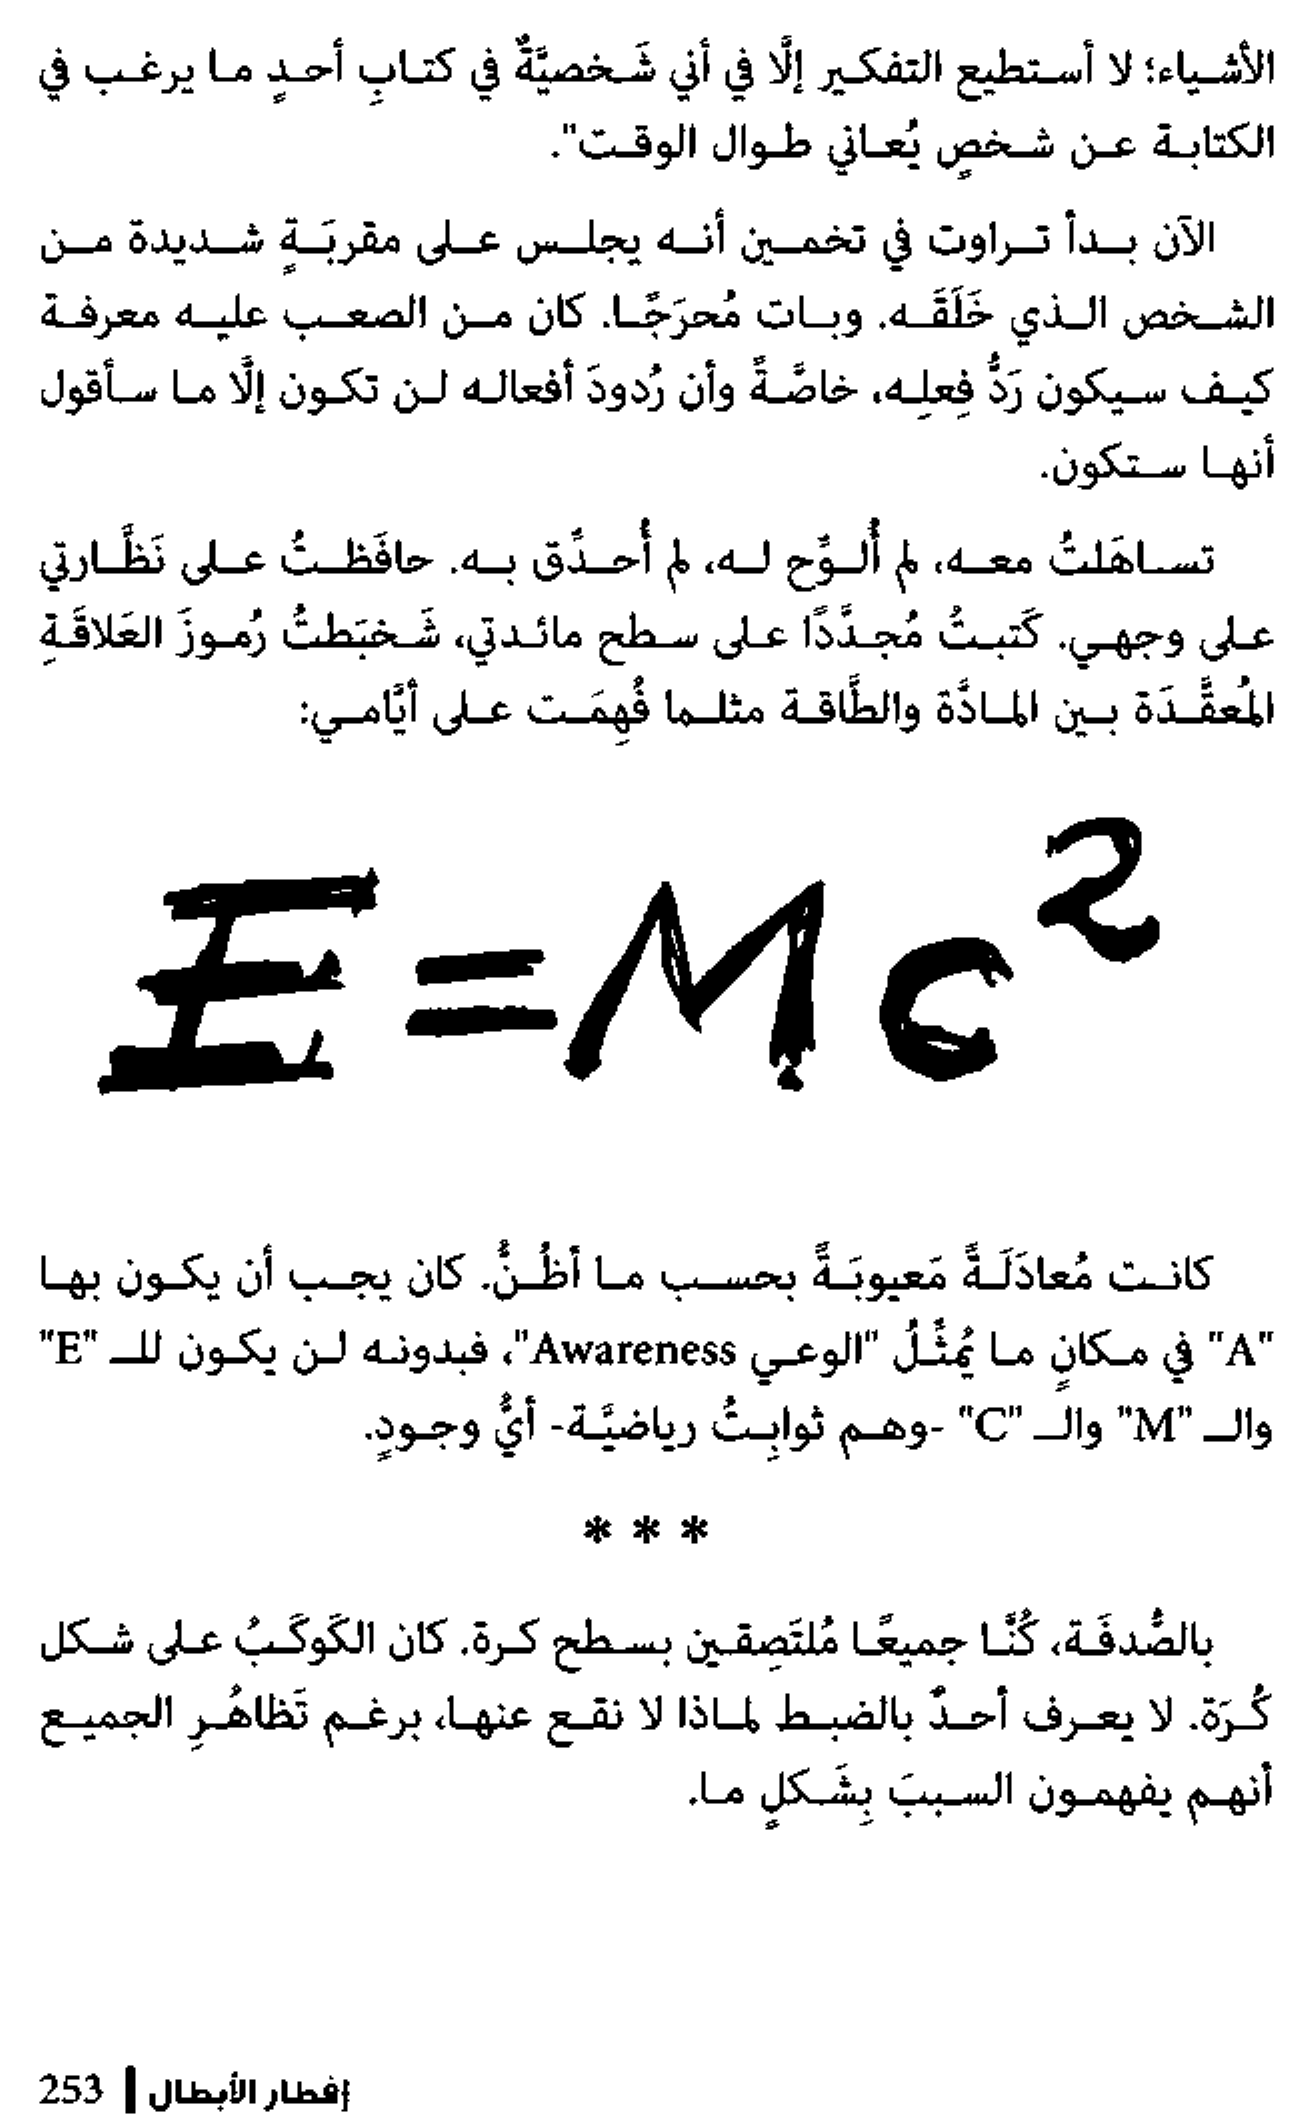 الأشياء؛ لا أستطيع التفكير إلَّا في أني شَخصيَّةٌ في كتابِ أحدٍ ما يرغب في
الكتابة عن شخصٍ يُعاني طوال الوقت".
الآن بدأ تراوت في تخمين أنه يجلس على مقربَةٍ شديدة من
الشخص الذي خَلَقَه. وبات مُحرَجًا. كان من الصعب عليه معرفة
كيف سيكون رَدُّ فِعلِه، خاصَّةً وأن رُدودَ أفعاله لن تكون إلَّا ما سأقول
أنها ستكون.
تساهَلتُ معه، لم أُلوِّح له، لم أُحدِّق به. حافَظتُ على نَظَّارتي
على وجهي. كَتبتُ مُجدَّدًا على سطح مائدتي، شَخبَطتُ رُموزَ العَلاقَةِ
المُعقَّدَة بين المادَّة والطَّاقة مثلما فُهِمَت على أيَّامي:
E=Mc²
كانت مُعادَلَةً مَعيوبَةً بحسب ما أظُنُّ. كان يجب أن يكون بها
"A" في مكانٍ ما يُمثِّلُ "الوعي Awareness"، فبدونه لن يكون للـ "E"
والـ "M" والـ "C" -وهم ثوابِتُ رياضيَّة- أيُّ وجودٍ.
* * *
بالصُّدفَة، كُنَّا جميعًا مُلتَصِقين بسطح كرة. كان الكَوكَبُ على شكل
كُرَة. لا يعرف أحدٌ بالضبط لماذا لا نقع عنها، برغم تَظاهُرِ الجميع
أنهم يفهمون السببَ بِشَكلٍ ما.
إفطار الأبطال | 253